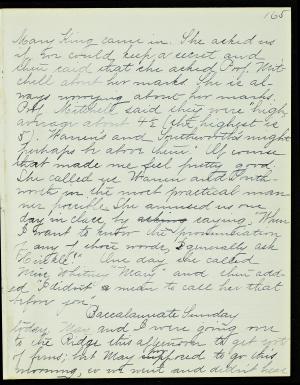 165
Mary King came in. She asked us
if we could keep a secret and
then said that she asked Prof. Mit-
chell about her marks. She is al-
ways worrying about her marks.
Prof. Mitchell said they were "high,
average about 45 (the highest is
5). Warren's and Southworth's might
perhaps be above them." Of course
that made me feel pretty good.
She called us Warren and South-
worth in the most practical man-
ner possible. She amused us one
day in class, by asking saying "When
I want to know the pronunciation
of any of those words, I generally ask
" One day she called
Miss Whitney "Mary" and then add-
ed "I didn't a mean to call her that
before you".
Baccalaureate Sunday
today. May and I were going over
to the Ridge this afternoon to get
of ferns; but May supposed to go this
morning, so we went and didn't hear